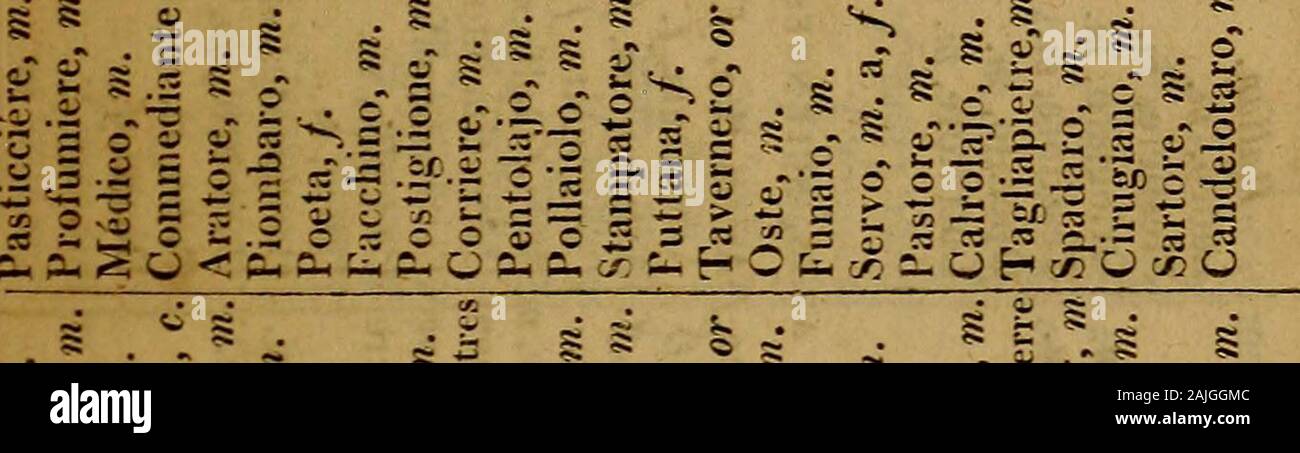 Pasticciére, m.
Profumiere, m
Médico, m.
Commediante
Aratore, m.
Piombaro, m.
Poeta, f.
Facchino, m.
Postiglione, m
Corriere, m.
Pentolajo, m.
Pollaiolo, m.
Stampatore, m
Futtana, f.
Tavernero, or
Oste, m.
Funaio, m.
Servo, m. a, f.
Pastore, m.
Calrolajo, m.
Tagliapietre, m
Spadaro, m.
Cirugiano, m.
Sartore, m.
Candelotaro, m
m.
, c.
m.
tres
m.
m.
or
m.
, m.
erre
, m
m.
m.
a
alamy
Image ID: 2AJGGMC
www.alamy.com